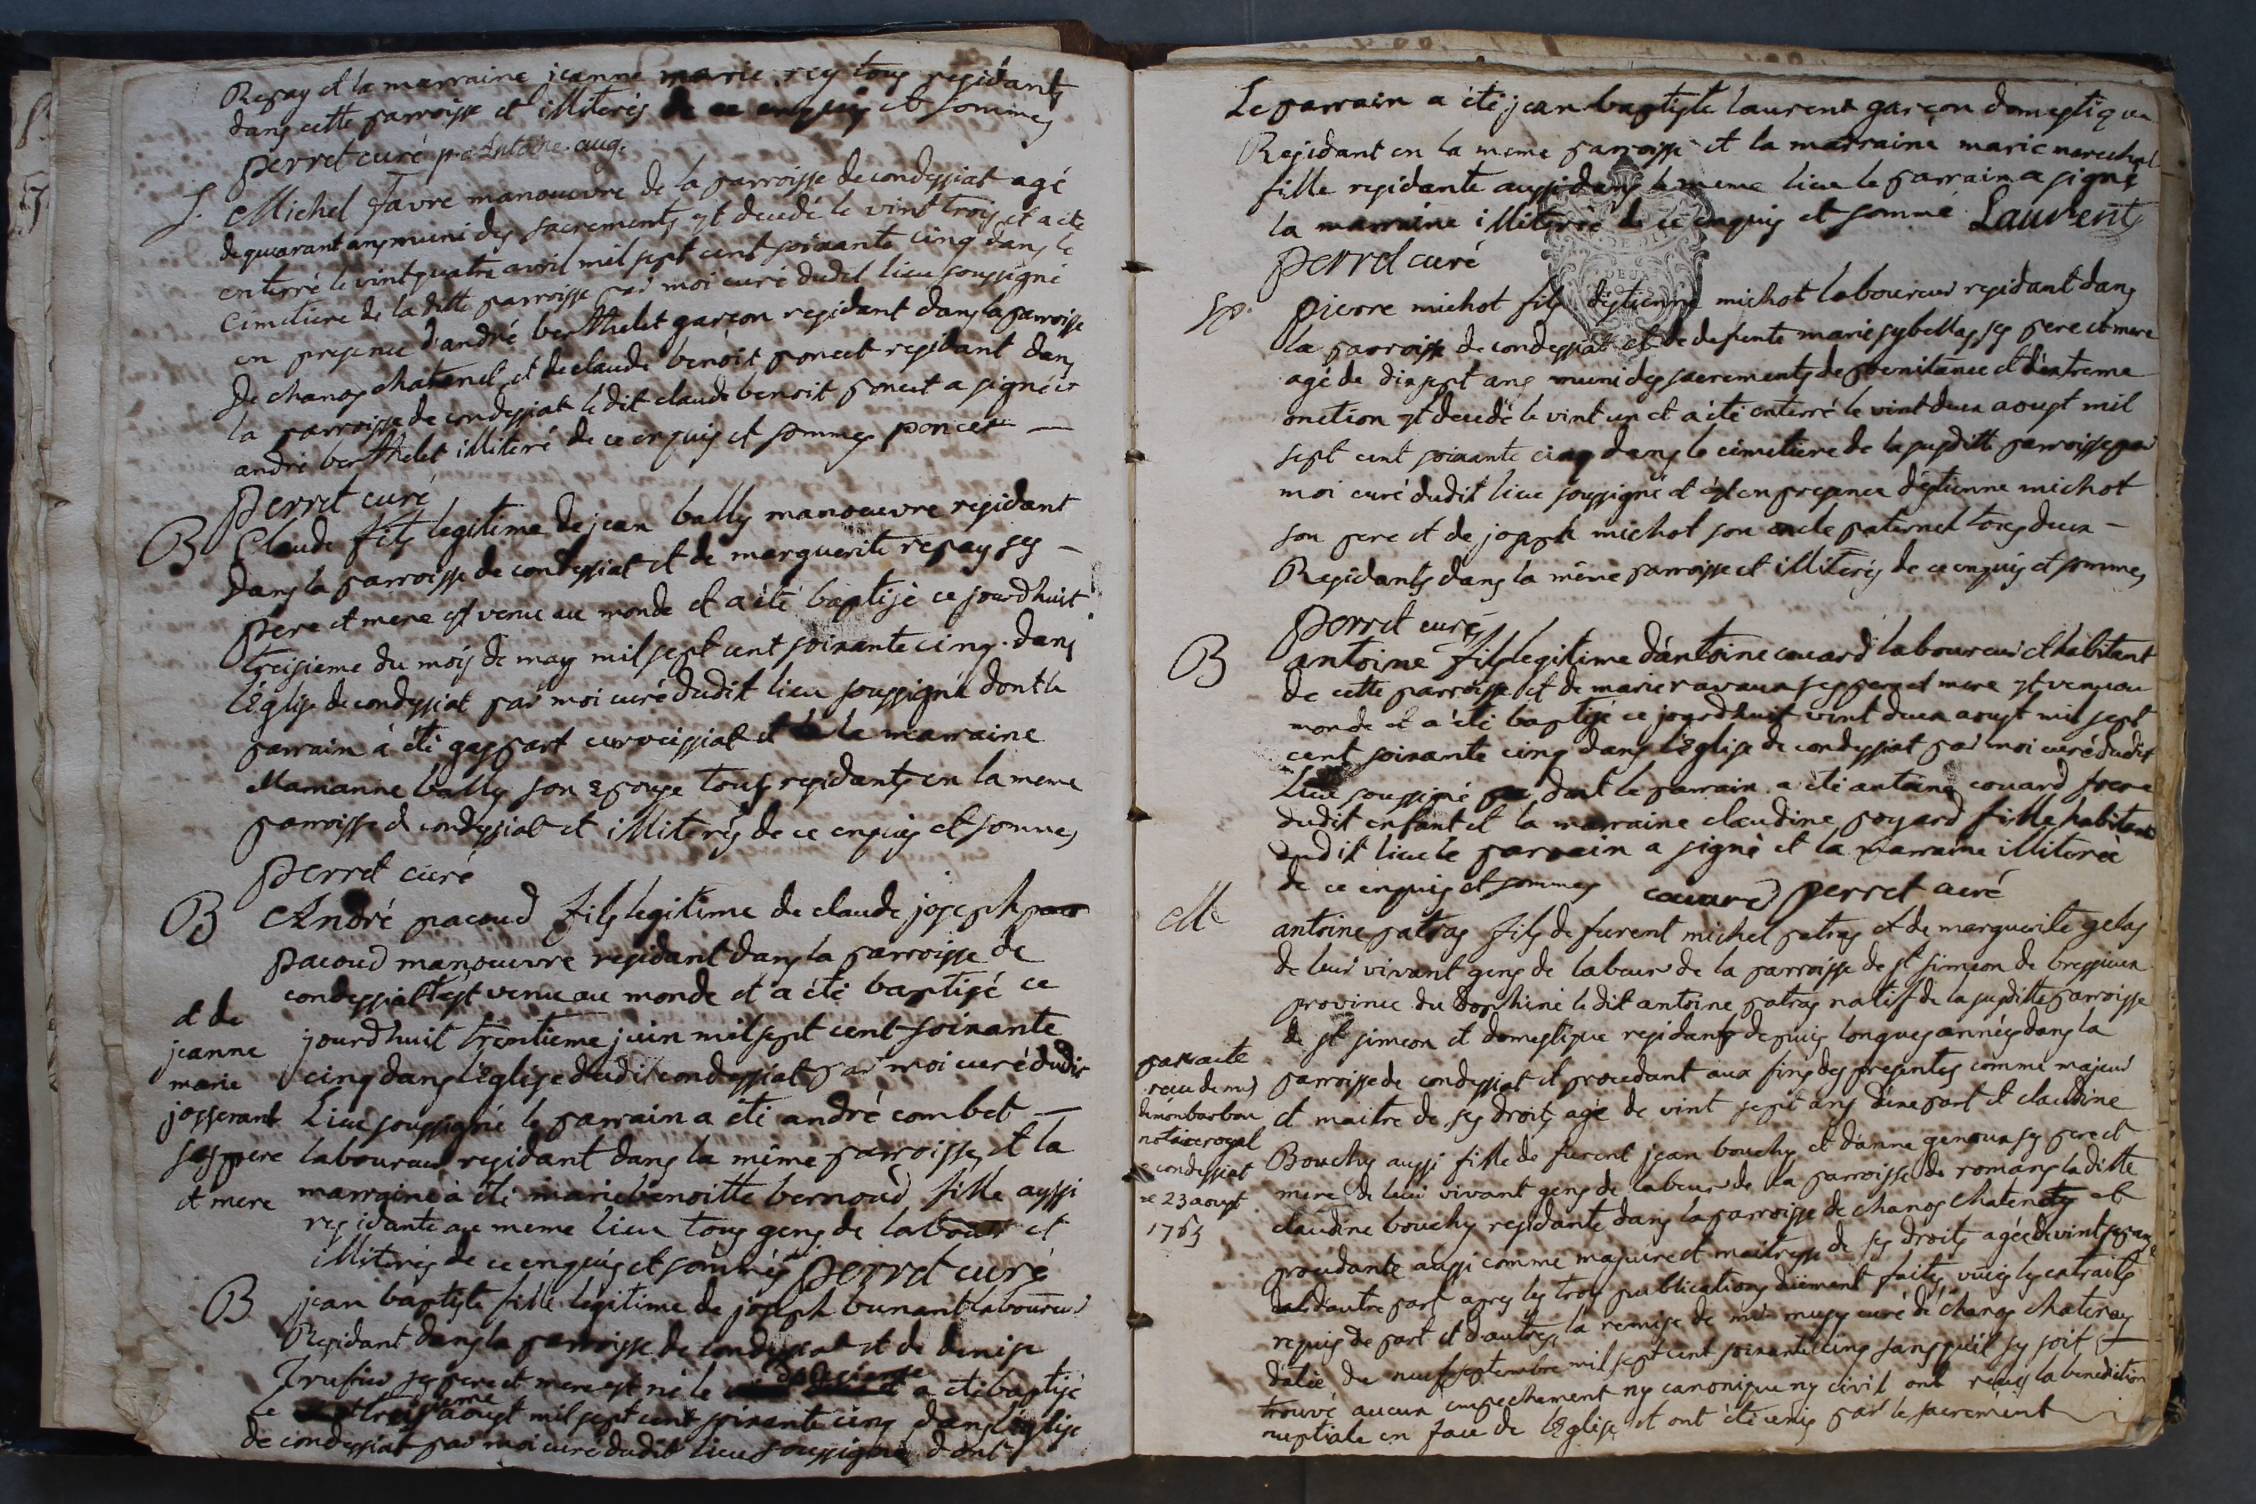 Repay et la marraine jeanne marie rey tous residants
dans cette parroisse et illiterés de ce enquis et sommes
perret curé
S. Michel favre manoeuvre de la parroisse de condessiat agé
de quarant ans muni des sacrements est decedé le vint trois et a été
enterré le vint quatre avril mil sept cent soixante cinq dans le
Cimetiere de la ditte parroisse par moi curé dudit lieu soussigné
en presence d'andré berthelet garçon residant dans la parroisse
de chanos chatenet et de claude benoit poncet residant dans
la parroisse de condessiat le dit claude benoit poncet a signé et
andré berthelet illiteré de ce enquis et sommes poncet
perret curé
B Claude fils legitime de jean bally manoeuvre residant
dans la parroisse de condessiat et de marguerite repay ses
pere et mere est venu au monde et a été baptisé ce jourdhuit
treisieme du mois de may mil sept cent soixante cinq dans
l'Eglise de condessiat par moi curé dudit lieu soussigné dont le
parrain a été gaspart curveissiat et la marraine
Marianne bally son Epouse tous residants en la meme
parroisse de condessiat et illiterés de ce enquis et sommes
perret curé
B André pacoud fils legitime de claude joseph
pacoud manoeuvre residant dans la parroisse de
condessiat est venu au monde et a été baptisé ce
jourdhuit trentieme juin mil sept cent soixante
cinq dans l'Eglise dudit condessiat par moi curé dudit
Lieu soussigné le parrain a été andré combet
laboureur residant dans la même parroisse et la
marraine à été marie benoitte bernoud fille aussi
residante au meme lieu tous gens de labour et
illiterés de ce enquis et sommés perret curé
et de
jeanne
marie
josserant
ses pere
et mere
B jean baptiste fille legitime de joseph bunant laboureur
Residant dans la parroisse de condessiat et de denise
ses pere et mere est né le deusieme et a eté baptisé
le troisieme aoust mil sept cent soixante cinq dans l'Eglise
de condessiat par moi curé dudit lieu soussigné dont
Le parrain a été jean baptiste laurent garçon domestique
Residant en la meme parroisse et la marraine marie marechal
fille residante aussi dans le meme lieu le parrain a signé
la marraine illiterée de ce enquis et sommé Laurent
perret curé
Sp. pierre michot fils d'estienne michot laboureur residant dans
la parroisse de condessiat et de defunte marie sybellas ses pere et mere
agé de dix sept ans muni des sacrements de penitence et d'extreme
onction est decedé le vint un et a été enterré le vint deux aoust mil
sept cent soixante cinq dans le cimetiere de la susditte parroisse par
moi curé dudit lieu soussigné et en presence d'estienne michot
son pere et de joseph michot son oncle paternel tous deux
Residants dans la même parroisse et illiterés de ce enquis et sommes
perret curé
B antoine fils legitime d'antoine couard laboureur et habitant
de cette parroisse et de marie ravaux ses pere et mere est venu au
monde et a été baptisé ce jourdhuit vint deux aoust mil sept
cent soixante cinq dans l'Eglise de condessiat par moi curé dudit
Lieu soussigné dont le parrain a été antoine couard frere
dudit enfant et la marraine claudine poyard fille habitante
audit lieu le parrain a signé et la marraine illiterée
de ce enquis et sommes couard perret curé
M antoine patras fils de furent michel patras et de marguerite gelas
de leur vivant gens de labeur de la parroisse de st simeon de bressieux
province du Dophiné le dit antoine patras natif de la susditte parroisse
de st simeon et domestique residant depuis longues années dans la
parroisse de condessiat et procedant aux fins des presentes comme majeur
et maitre de ses droits agé de vint sept ans d'une part et claudine
Bouchy aussi fille de furent jean bouchy et d'anne genoux ses pere et
mere de leur vivant gens de labeur de la parroisse de romans la ditte
claudine bouchy residante dans la parroisse de chanos chatenay et
procedante aussi comme majeure et maitresse de ses droits agée de vint
d'autre part apres les trois publications duement faites vues les extraits
requis de part et d'autres, la remise de mr musy curé de chanos chatenay
datée du neuf septembre mil sept cent soixante cinq sans qu'il sy soit
trouvé aucun empechement ny canonique ny civil ont reçus la benediction
nuptiale en face de l'Eglise et ont été unis par le sacrement
par acte
recu de mr
demonbarbon
notaire royal
a condessiat
le 23 aoust
1765